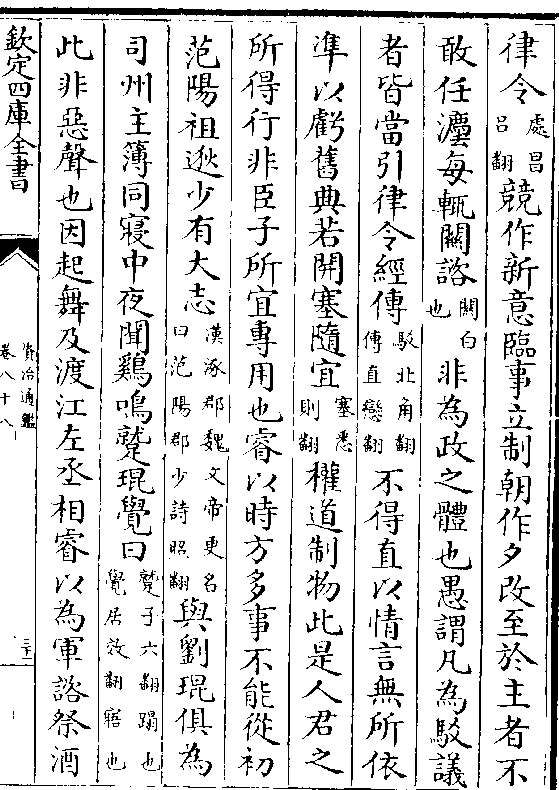 律令處昌呂翻競作新意臨事立制朝作夕改至於主者不
敢任灋每輒關諮關白也非為政之體也愚謂凡為駁議
者皆當引律令經傳駁北角翻傳直戀翻不得直以情言無所依
凖以虧舊典若開塞隨宜塞悉則翻權道制物此是人君之
所得行非臣子所宜專用也睿以時方多事不能從初
范陽祖逖少有大志漢涿郡魏文帝更名曰范陽郡少詩照翻與劉琨俱為
司州主簿同寢中夜聞鷄鳴蹵琨覺曰蹵子六翻蹋也覺居效翻寤也
此非惡聲也因起舞及渡江左丞相睿以為軍諮祭酒
欽定四庫全書
資治通鑑
卷八十八
三十二